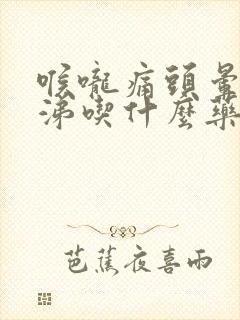 喉嚨痛頭暈
涕喫什麼藥
芭蕉夜喜雨